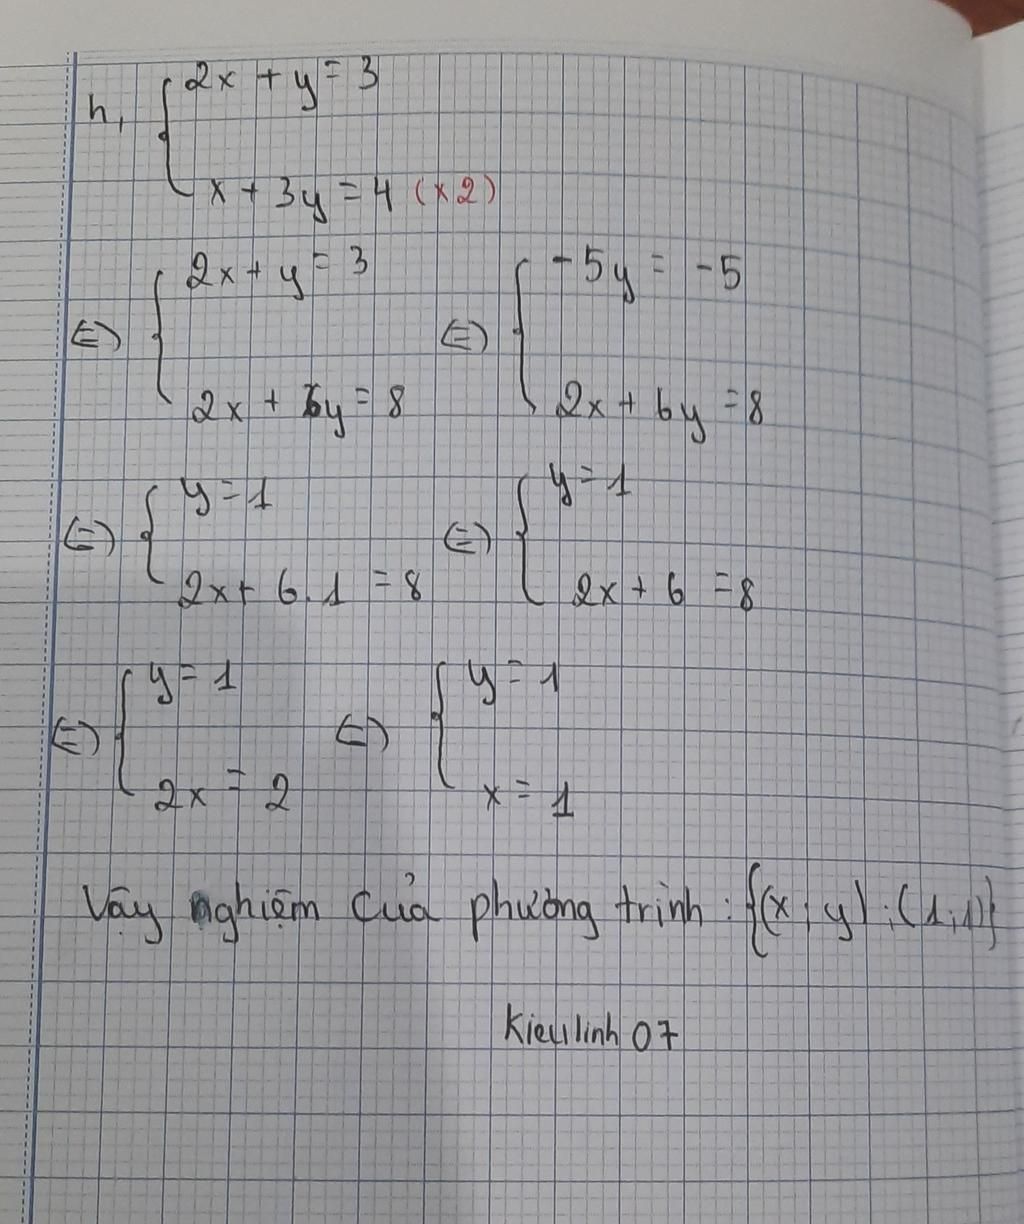 h, { 2x + y = 3
x + 3y = 4 (x2)
(=) { 2x + y = 3 (=) { -5y = -5
2x + 6y = 8 2x + 6y = 8
(=) { y = 1 (=) { y = 1
2x + 6.1 = 8 2x + 6 = 8
(=) { y = 1 (=) { y = 1
2x = 2 x = 1
Vậy nghiệm của phường trình : {(x; y) ; (1;1)}
Kieulinh 07